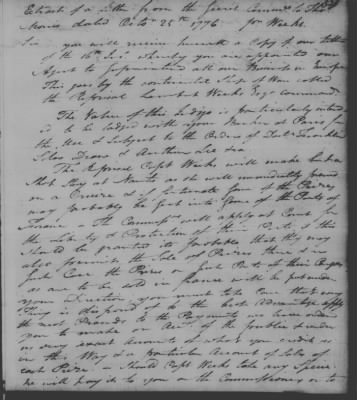 Extract of a Letter from the Secret Committee to Thos
Morris dated Octr 25th 1776 pr Weeks
Sir you will receive herewith a Copy of our letter
of the we have appointed you
Agent to Superintend all our Business in Europe
This goes by the continental Sloop of War called
the Reprisal Lambert Weeks Esqr Commander
The Value of this Indigo is particularly intend
ed to be lodged with your Banker at Paris for
the Use & Subject to the Orders of Doctr Franklin
Silas Deane & Arthur Lee Esqs
The Reprisal Capt Weeks will make but a
Short Stay at Nantz as he will immediately proceed
on a Cruise & if fortunate some of the Prizes
may probably be sent into some of the Ports of
France, the Commissrs will apply at Court for
the Liberty & Protection of their Ports & this
should be granted its probable that they may
also permit the Sale of Prizes, there in
such Case the Prizes or such Parts of their Cargoes
as are to be sold in france will be put under
your Direction you must take care that every
Thing is disposed of to the best Advantage apply
the neat Proceeds to the Payments we have order'd
you to make on Acct of the Publick & render
us very exact Accounts of what you credit us
in this Way & a particular Account of Sales of
each Prize. Should Capt Weeks take any Specie
he will pay it to you or the Commissioners or to